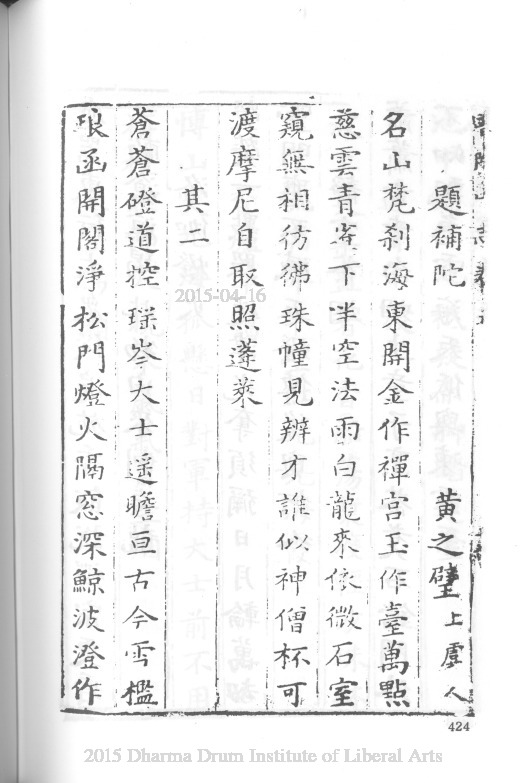 題補陀 黃之璧上虞人
名山梵刹海東開金作禪宮玉作臺萬點
慈雲青下半空法雨白龍來依微石室
窺無相彷彿珠幢見辨才誰似神僧杯可
渡摩尼自取照蓬萊
其二
蒼蒼磴道控瑤岑大士遥瞻亘古今雪檻
琅函開閣淨松門燈火隔窓深鯨波澄作
424
2015-04-16
2015 Dharma Drum Institute of Liberal Arts